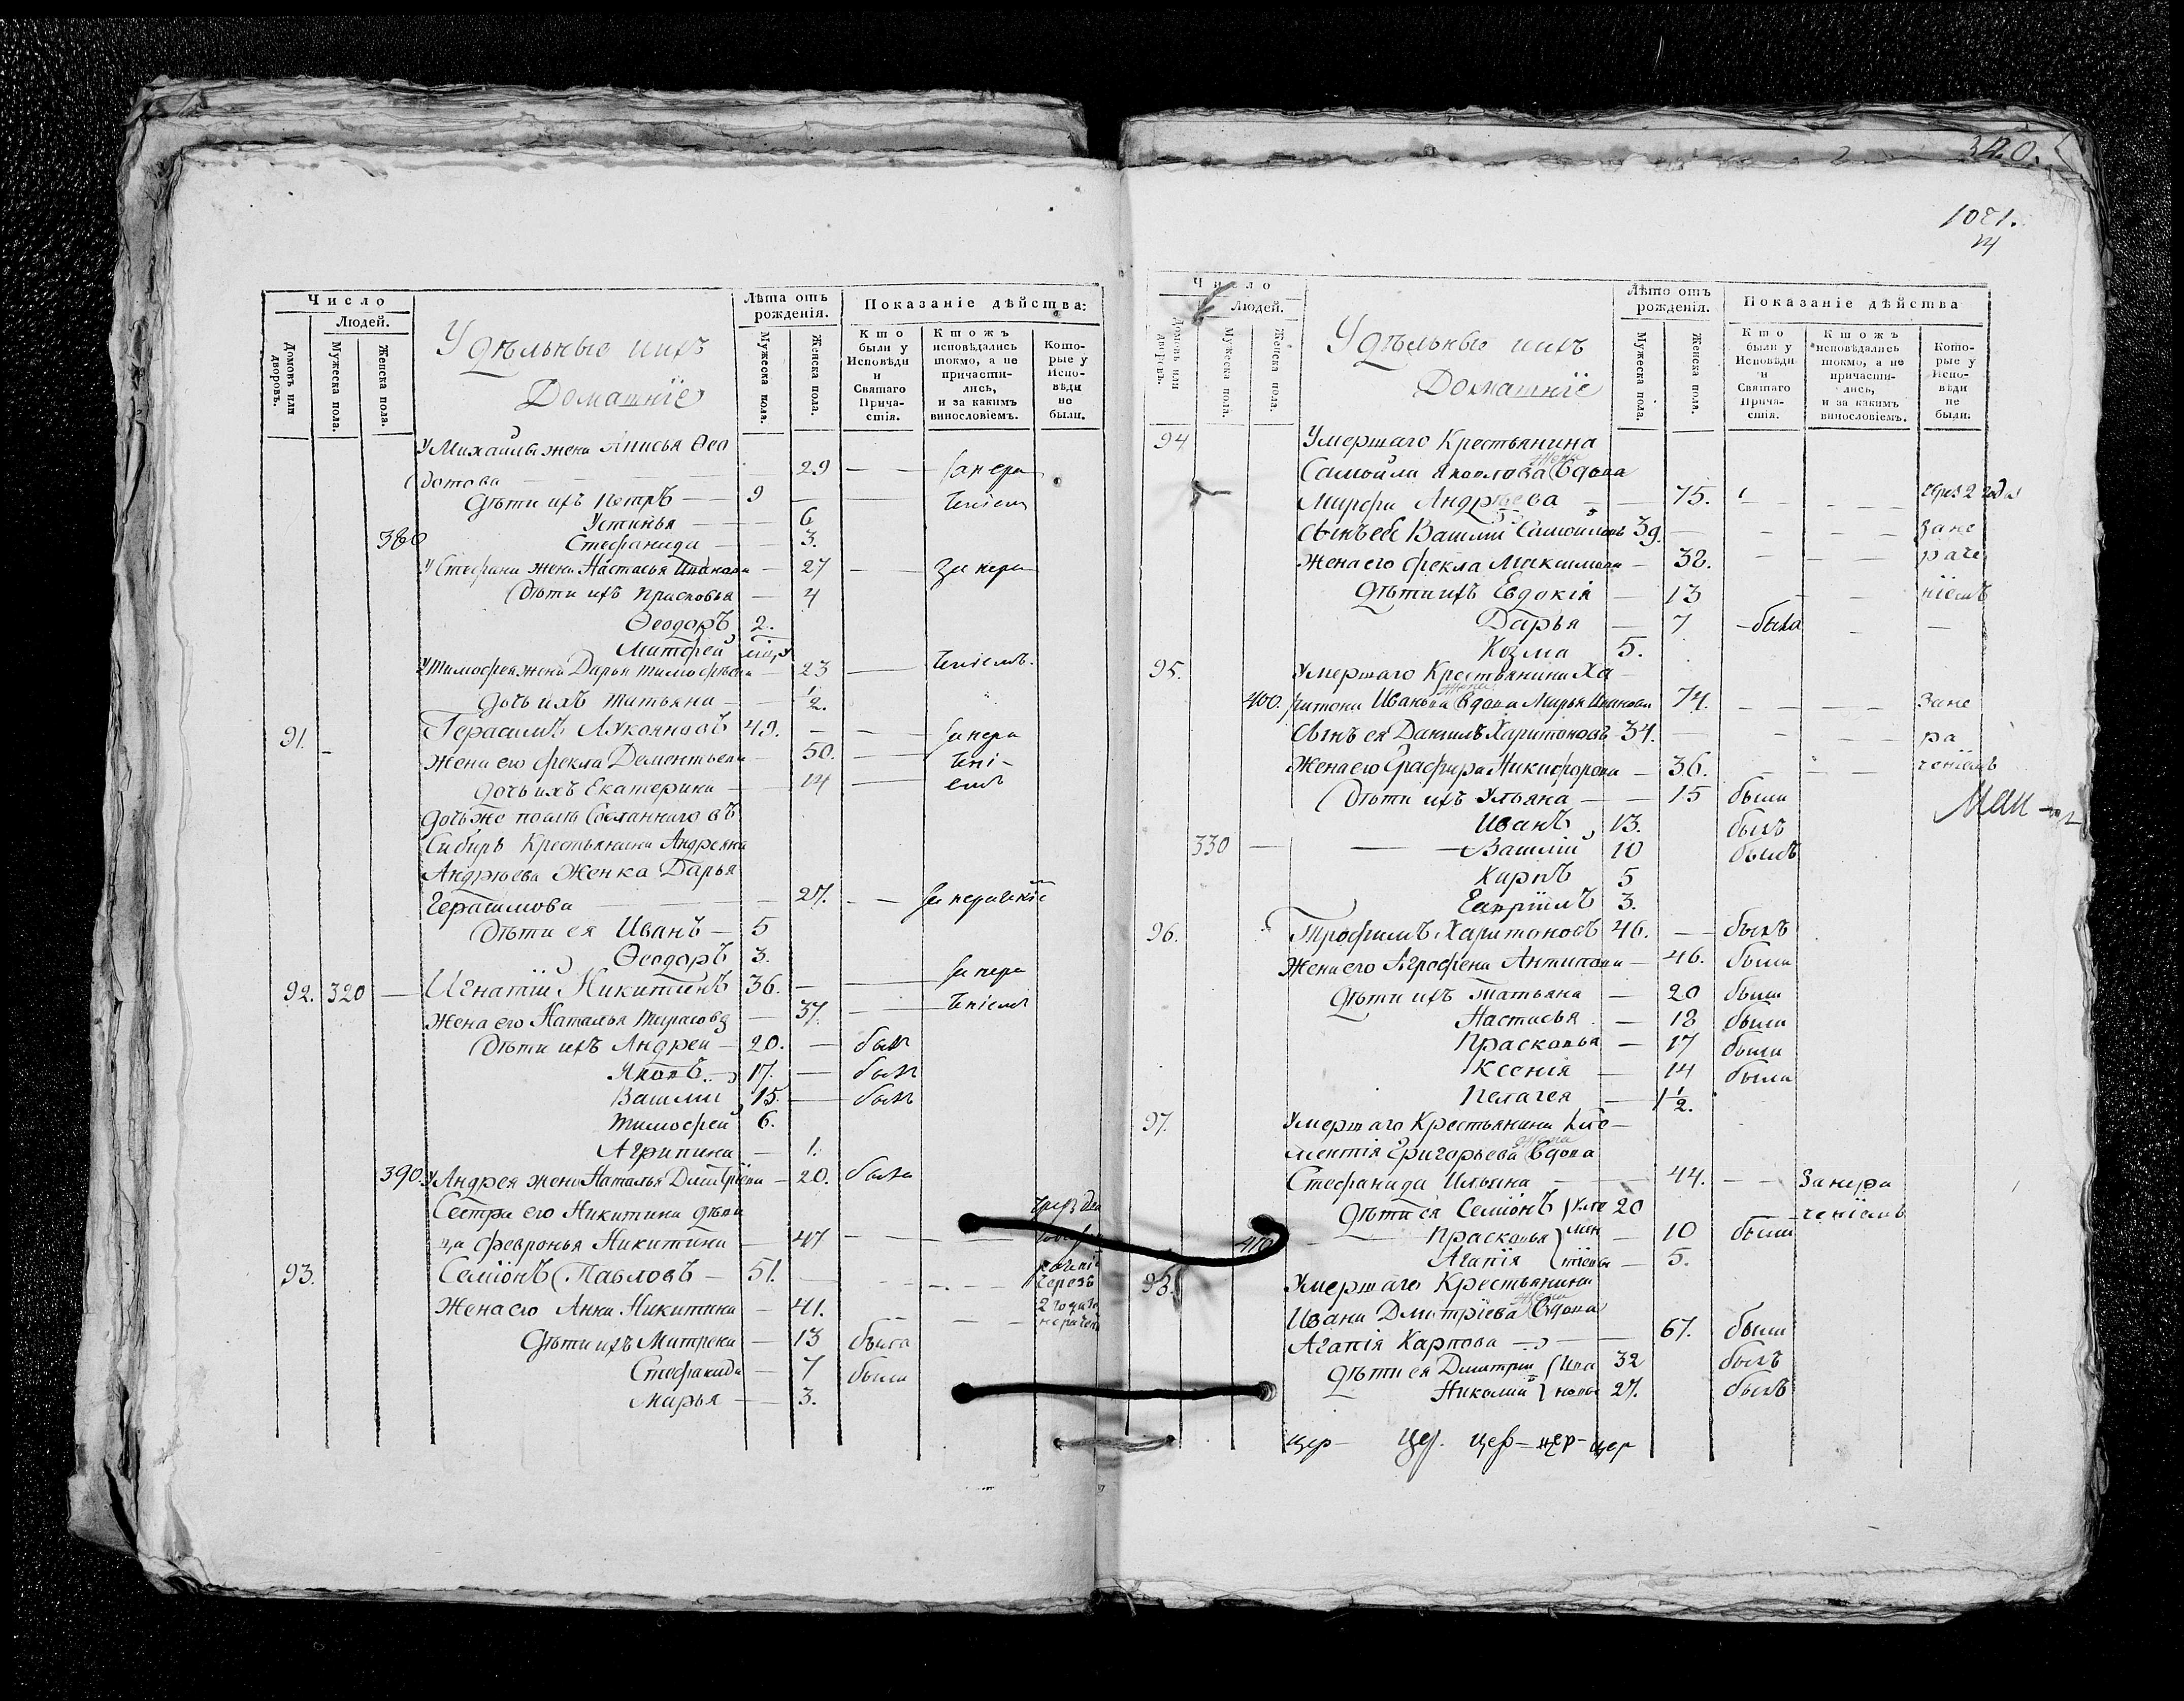 340.
1081.
Число
Людей.
Домовъ или дворовъ.
Мужеска пола.
Женска пола.
Удѣльные ихъ
Домашніе
Лѣта отъ рожденія.
Мужеска пола.
Женска пола.
Показаніе дѣйства:
Кто были у Исповѣди и Святаго Причастія.
Ктожъ исповѣдались токмо, а не причастились, и за какимъ винословіемъ.
Которые у Исповѣди не были.
У Михайлы жена Анисья Ѳео
дотова — 29 — — за нера
Дѣти ихъ Петръ — 9 — — ченіемъ
Устинья — 6
380 Стефанида — 3.
У Стефана жена Настасья Иванова — 27 — — за нера
Дѣти ихъ Прасковья — 4
Ѳеодоръ 2.
Митрей
У Тимофея жена Дарья Тимофѣева — 23 — ченіемъ.
дочь ихъ Татьяна — 1/2.
91. Герасимъ Лукояновъ 49. — — — за нера
Жена его Фекла Дементьева — 50. — чені-
дочь ихъ Екатерина — 14 — емъ
дочь же Сосланнаго въ
Сибирь Крестьянина Андреяна
Андрѣева Женка Дарья
Герасимова — 27. — — за нераченіе
Дѣти ея Иванъ — 5
Ѳеодоръ 3.
92. 320 — Игнатій Никитинъ 36. — — за нера
Жена его Наталья Тарасова — 37. — — ченіемъ
Дѣти ихъ Андрей — 20. — былъ
Яковъ — 17. — былъ
Василій 15. — былъ
Тимофей 6.
Агрипина — 1.
390. У Андрея жена Наталья Дмитріева — 20. была
Сестра его Никитина дѣви
ца Февронья Никитина — 47 — — —
93. Семіонъ Павловъ — 51. — — — — чрезъ
Жена его Анна Никитина — 41. — — — 2 года
Дѣти ихъ Матрена — 13 была
Стефанида — 7 была
Марья — 3.
Число
Людей.
Домовъ или дворовъ.
Мужеска пола.
Женска пола.
Удѣльные ихъ
Домашніе
Лѣто отъ рожденія.
Мужеска пола.
Женска пола.
Показаніе дѣйства
Кто были у Исповѣди и Святаго Причастія.
Ктожъ исповѣдались токмо, а не причастились, и за какимъ винословіемъ.
Которые у Исповѣди не были.
94 Умершаго Крестьянина
Самойлы Яковлова жена Вдова
Марфа Андрѣева — 75. — — — чрез 2 года
Сынъ её Василій Самойловъ 39. — — — — за не
Жена его Фекла Максимова — 38. — — — раче
Дѣти ихъ Евдокія — 13 — — ніемъ
Дарья — 7 — была — —
Козма 5.
95. Умершаго Крестьянина Ха
400. ритона Иванова жена Вдова Марья Иванова 74. — — — — за не
Сынъ ея Данилъ Харитоновъ 34. — — — — ра
Жена его Никифорова — 36. — — — ченіемъ
Дѣти ихъ Ульяна — — 15 была
Иванъ 13. былъ
330 — — Василій 10 былъ
Карпъ 5
Гавріилъ 3.
96. Трофимъ Харитоновъ 46. — — былъ
Жена его Агрофена Антипова — 46. была
Дѣти ихъ Татьяна — 20 была
Настасья — 18 была
Прасковья — 17 была
Ксенія — 14 была
Пелагея — 1 1/2.
97. Умершаго Крестьянина Кле-
ментія Григорьева жена Вдова
Стефанида Ильина — 44. — — За нера
Дѣти ея Семіонъ Кле 20 ченіемъ
410 Прасковья мен — 10 была
Агапія тіевы — 5.
98. Умершаго Крестьянина
Ивана Дмитріева жена Вдова
Агапія Карпова — 67. была
Дѣти ея Дмитрій Ива 32 былъ
Николай новы 27. былъ
цер- цер. цер- цер- цер